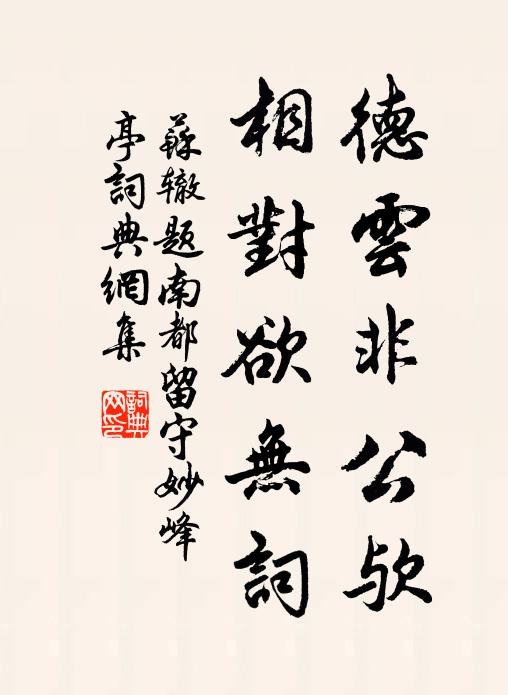 德雲非公欤
相對欲無詞
蘇辙题南都留守妙峰
亭詞典網集
詞典
网印